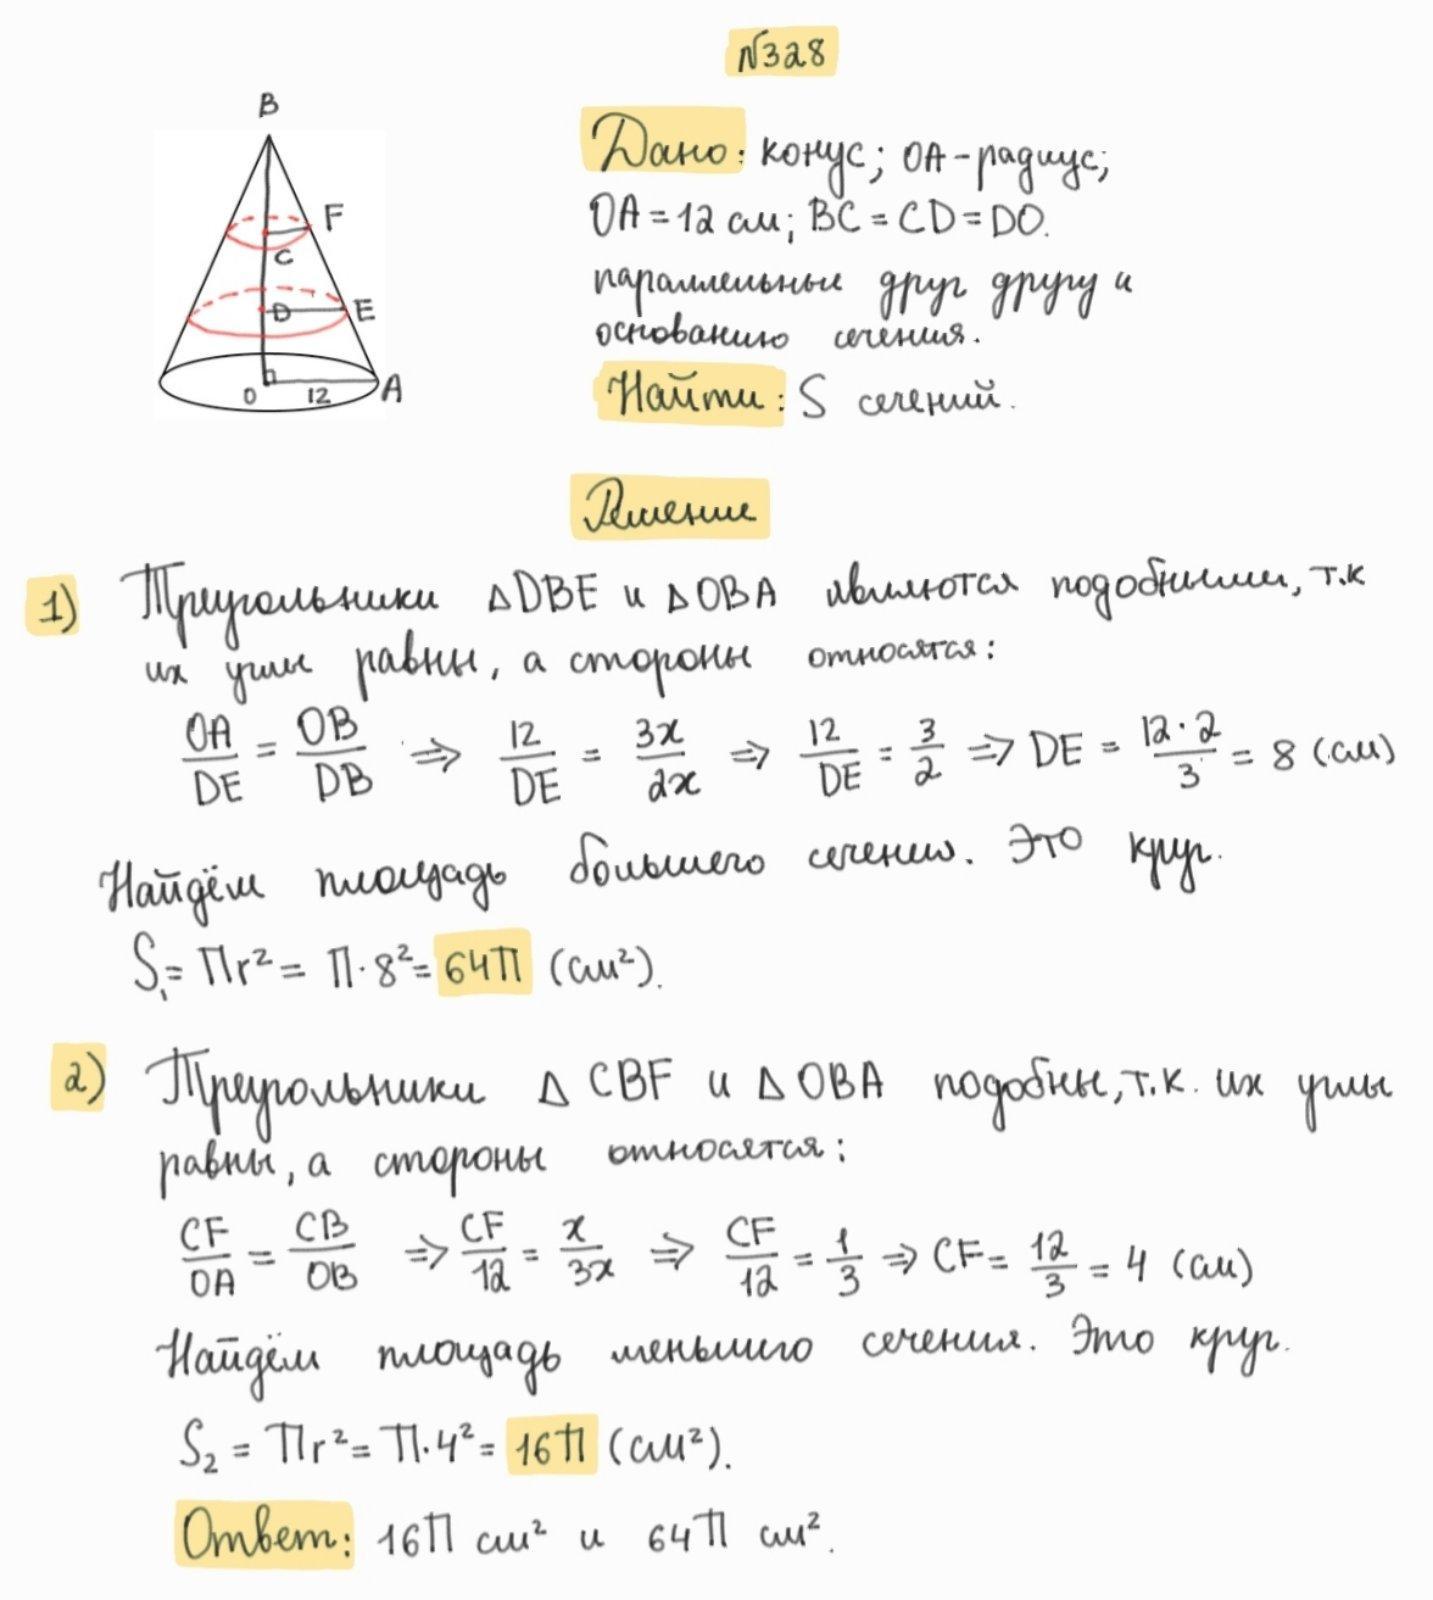 №328
B
F
C
D E
O 12 A
Дано: конус; OA - радиус;
OA = 12 см; BC = CD = DO.
параллельные друг другу и
основанию сечения.
Найти: S сечений.
Решение
1) Треугольники ΔDBE и ΔOBA являются подобными, т.к
их углы равны, а стороны относятся:
OA/DE = OB/DB ⇒ 12/DE = 3x/2x ⇒ 12/DE = 3/2 ⇒ DE = 12·2/3 = 8 (см)
Найдём площадь большего сечения. Это круг.
S₁ = Пr² = П·8² = 64П (см²).
2) Треугольники Δ CBF и Δ OBA подобны, т.к. их углы
равны, а стороны относятся:
CF/OA = CB/OB ⇒ CF/12 = x/3x ⇒ CF/12 = 1/3 ⇒ CF = 12/3 = 4 (см)
Найдём площадь меньшего сечения. Это круг.
S₂ = Пr² = П·4² = 16П (см²).
Ответ: 16П см² и 64П см².